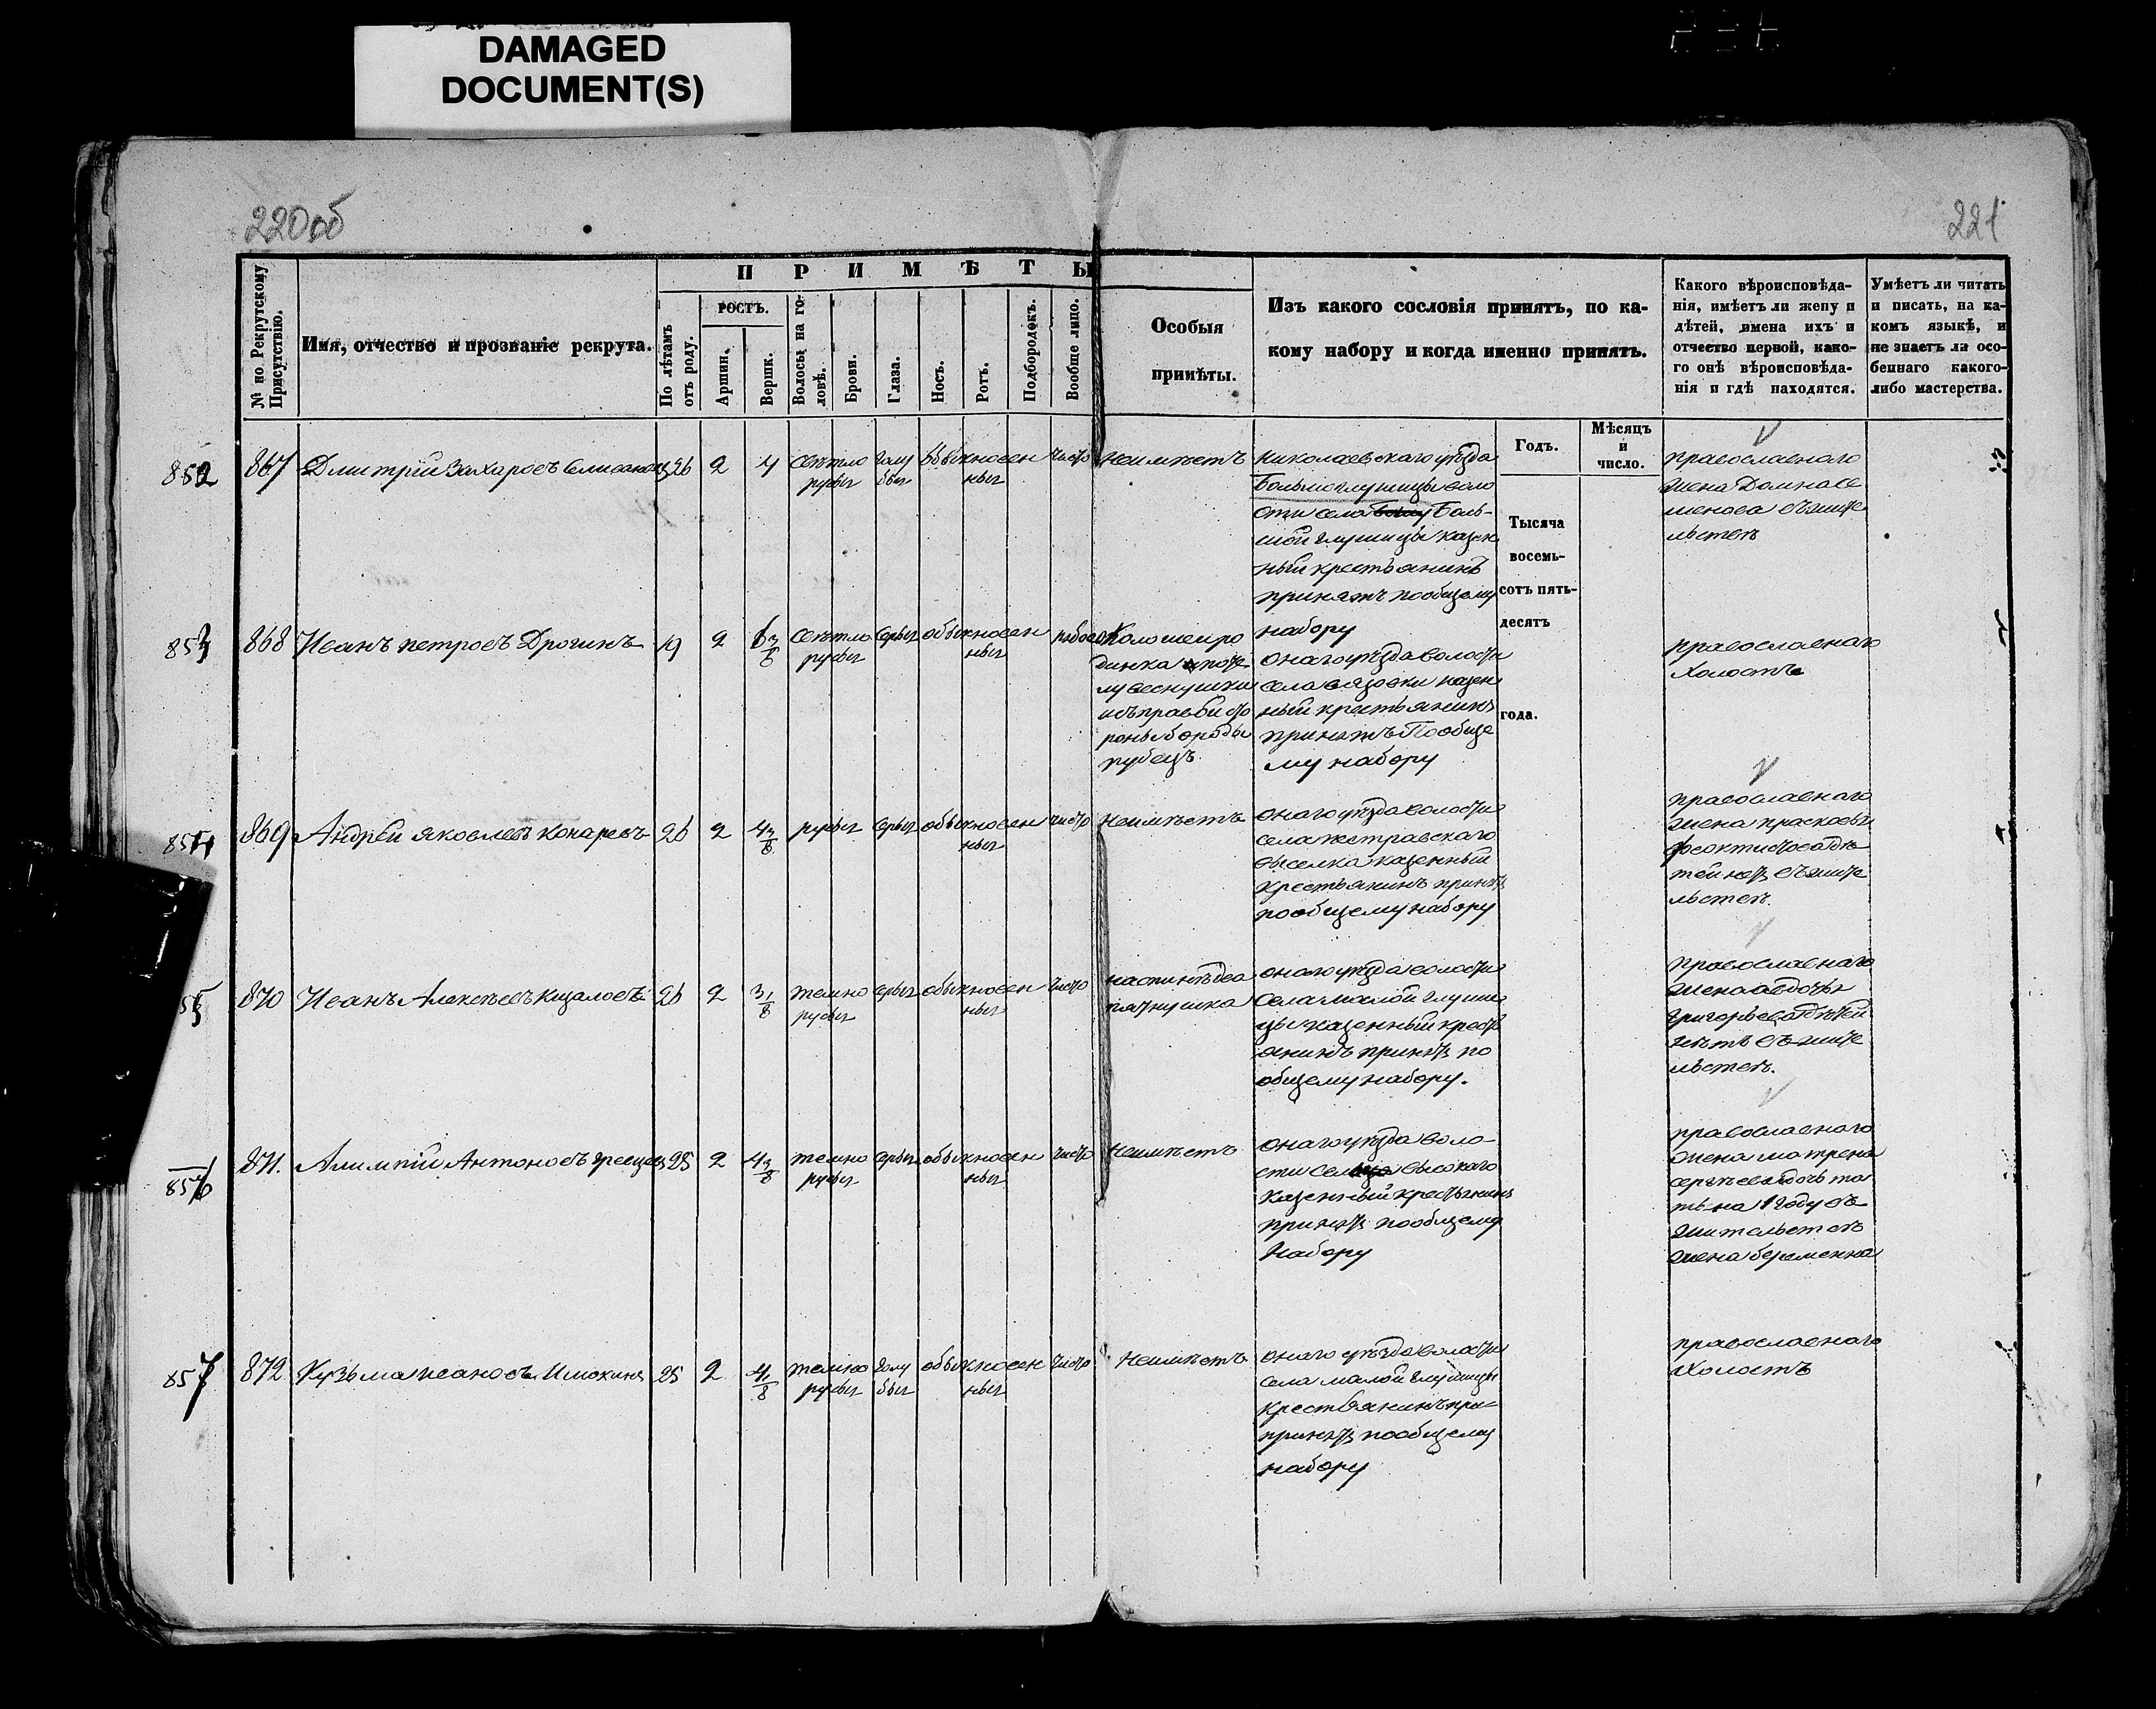 DAMAGED
DOCUMENT(S)
220об
221
№ по Рекрутскому Присутствію.
Имя, отчество и прозваніе рекрута.
ПРИМѢТЫ
По лѣтамъ отъ роду.
РОСТЪ.
Аршин.
Вершк.
Волосы на головѣ.
Брови.
Глаза.
Носъ.
Ротъ.
Подбородокъ.
Вообще лицо.
Особыя
примѣты.
Изъ какого сословія принятъ, по ка-
кому набору и когда именно принятъ.
Какого вѣроисповѣда-
нія, имѣетъ ли жену и
дѣтей, имена ихъ и
отчество первой, како-
го онѣ вѣроисповѣда-
нія и гдѣ находятся.
Умѣетъ ли читать
и писать, на ка-
комъ языкѣ, и
не знаетъ ли осо-
беннаго какого-
либо мастерства.
Годъ.
Мѣсяцъ
и
число.
Тысяча
восемь-
сотъ пять-
десятъ
года.
852
867 Дмитрій Захаровъ Елисановъ 26 2 4 светло русыя голубыя обыкновенныя чисто
Неимѣетъ
Николаевскаго уѣзда
Большеглушицы воло
сти села Боль-
шой глушицы казен
ный крестьянинъ
принятъ пообщему
набору
православнаго
жена Домна се
менова въ жите
льстве
853
868 Иванъ петровъ Дрогинъ 19 2 6 3/8 светло русыя серыя обыкновенныя рябово
Коло шеи ро
динка
лу веснушки
исъ правой сто
роны бороды
рубецъ
онаго уѣзда волости
села вязовки казен
ный крестьянинъ
принятъ Пообще
му набору
православнаго
Холостъ
854
869 Андрей яковлевъ Конаревъ 26 2 4 3/8 русыя серыя обыкновенныя чисто
Неимѣетъ
онаго уѣзда волости
села пестравскаго
выселка казенный
крестьянинъ принятъ
пообщему набору
православнаго
жена прасковья
феоктистова дѣ
тей нетъ въ жите
льстве.
55
870 Иванъ Алексѣевъ Кизаловъ 26 2 3 1/8 темно русыя серыя обыкновенныя чисто
наспинѣ два
пятнушка
онаго уѣзда волости
села малой глуши
цы казенный кресть
янинъ принятъ по
общему набору.
православнаго
жена авдотья
григорьева дѣтей
нѣтъ въ жите
льстве.
856
871. Алимпій Антоновъ грецовъ 25 2 4 3/8 темно русыя серыя обыкновенныя чисто
Неимѣетъ
онаго уѣзда воло-
сти села высокаго
казенный крестьянинъ
принятъ пообщему
Набору
православнаго
жена матрена
сергѣева дочь та
тьяна 1 году въ
жительстве
жена беременна
857
872 Кузьма ивановъ Имохинъ 25 2 4 1/8 темно русыя голубыя обыкновенныя чисто
Неимѣетъ
онаго уѣзда волости
села малой глушицы
крестьянинъ при-
принятъ пообщему
набору
православнаго
Холостъ